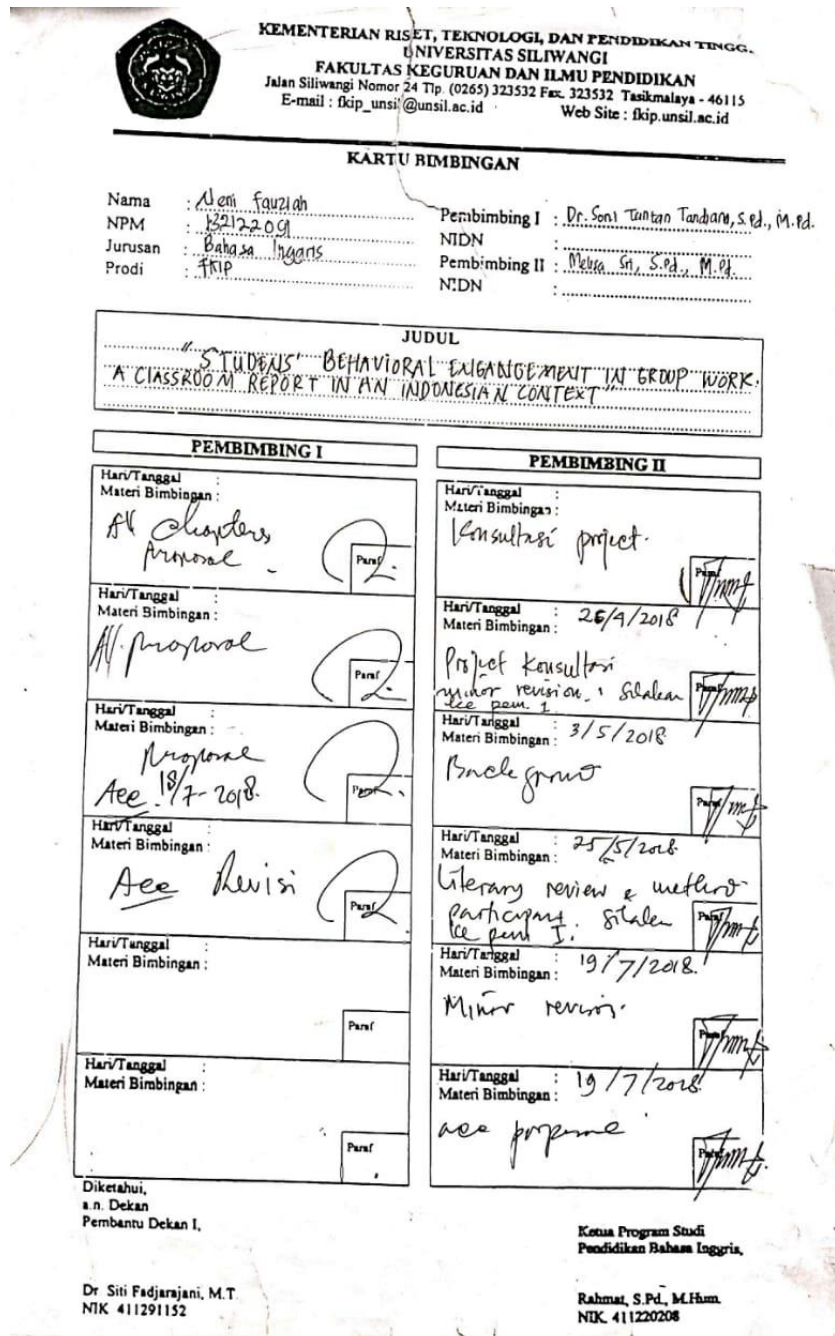 KEMENTERIAN RISET, TEKNOLOGI, DAN PENDIDIKAN TINGG.
UNIVERSITAS SILIWANGI
FAKULTAS KEGURUAN DAN ILMU PENDIDIKAN
Jalan Siliwangi Nomor 24 Tlp. (0265) 323532 Fax. 323532 Tasikmalaya - 46115
E-mail : fkip_unsil@unsil.ac.id Web Site : fkip.unsil.ac.id
KARTU BIMBINGAN
Nama : Neni Fauziah
NPM : 132122091
Jurusan : Bahasa Inggris
Prodi : FKIP
Pembimbing I : Dr. Soni Tantan Tandiana, S.Pd., M.Pd.
NIDN :
Pembimbing II : Melisa Sri, S.Pd., M.Pd.
NIDN :
JUDUL
"STUDENS' BEHAVIORAL ENGANGEMENT IN GROUP WORK.
A CLASSROOM REPORT IN AN INDONESIAN CONTEXT"
PEMBIMBING I
Hari/Tanggal :
Materi Bimbingan :
All Chapters
Proposal
Paraf
Hari/Tanggal :
Materi Bimbingan :
All proposal
Paraf
Hari/Tanggal :
Materi Bimbingan :
Proposal
Acc. 18/7-2018.
Paraf
Hari/Tanggal :
Materi Bimbingan :
Acc Revisi
Paraf
Hari/Tanggal :
Materi Bimbingan :
Paraf
Hari/Tanggal :
Materi Bimbingan :
Paraf
PEMBIMBING II
Hari/Tanggal :
Materi Bimbingan :
Konsultasi project.
Paraf
Hari/Tanggal : 26/4/2018
Materi Bimbingan :
Project Konsultasi
minor revision. Silakan
ke pem. 1
Hari/Tanggal : 3/5/2018
Materi Bimbingan :
Background
Paraf
Hari/Tanggal : 25/5/2018
Materi Bimbingan :
Literary review & method
participant. Silakan
ke pem I.
Paraf
Hari/Tanggal : 19/7/2018.
Materi Bimbingan :
Minor revision.
Paraf
Hari/Tanggal : 19/7/2018
Materi Bimbingan :
acc
Paraf
Diketahui,
a.n. Dekan
Pembantu Dekan I,
Dr. Siti Fadjarajani, M.T.
NIK 411291152
Ketua Program Studi
Pendidikan Bahasa Inggris,
Rahmat, S.Pd., M.Hum.
NIK. 411220208